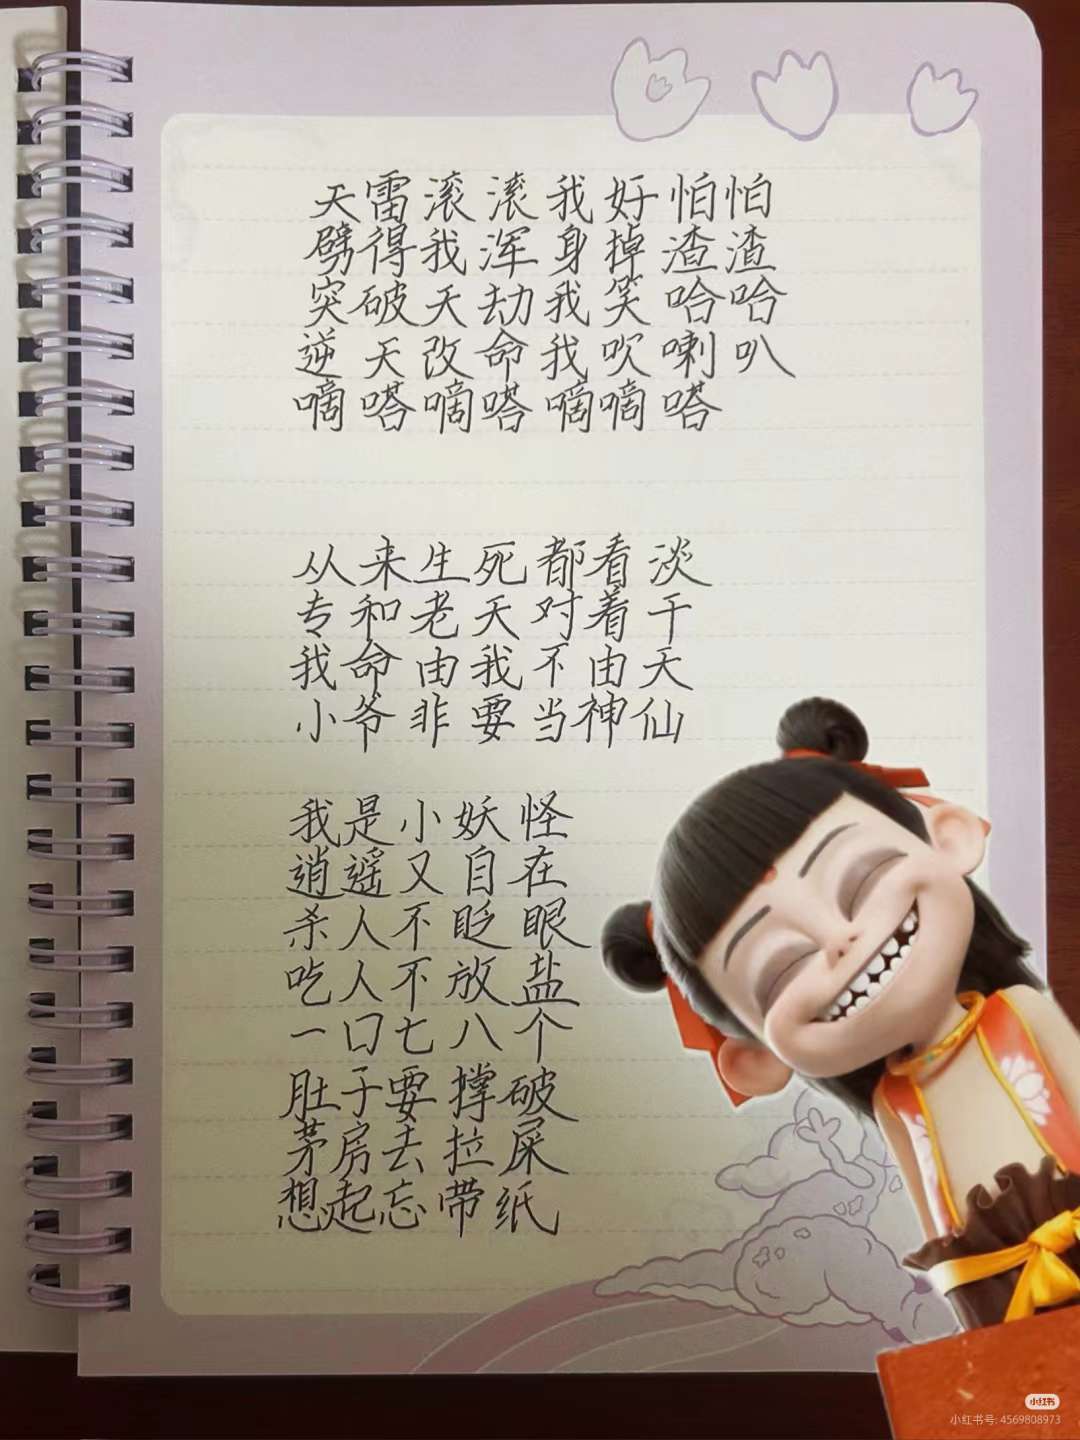 天雷滚滚我好怕怕
劈得我浑身掉渣渣
突破天劫我笑哈哈
逆天改命我吹喇叭
嘀嗒嘀嗒嘀嘀嗒
从来生死都看淡
专和老天对着干
我命由我不由天
小爷非要当神仙
我是小妖怪
逍遥又自在
杀人不眨眼
吃人不放盐
一口七八个
肚子要撑破
茅房去拉屎
想起忘带纸
小红书
小红书号: 4569808973